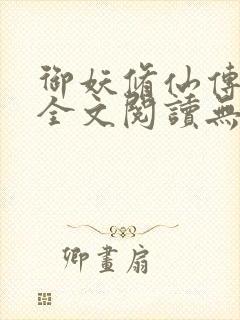 御妖脩仙傳
全文閱讀無
卿畫扇